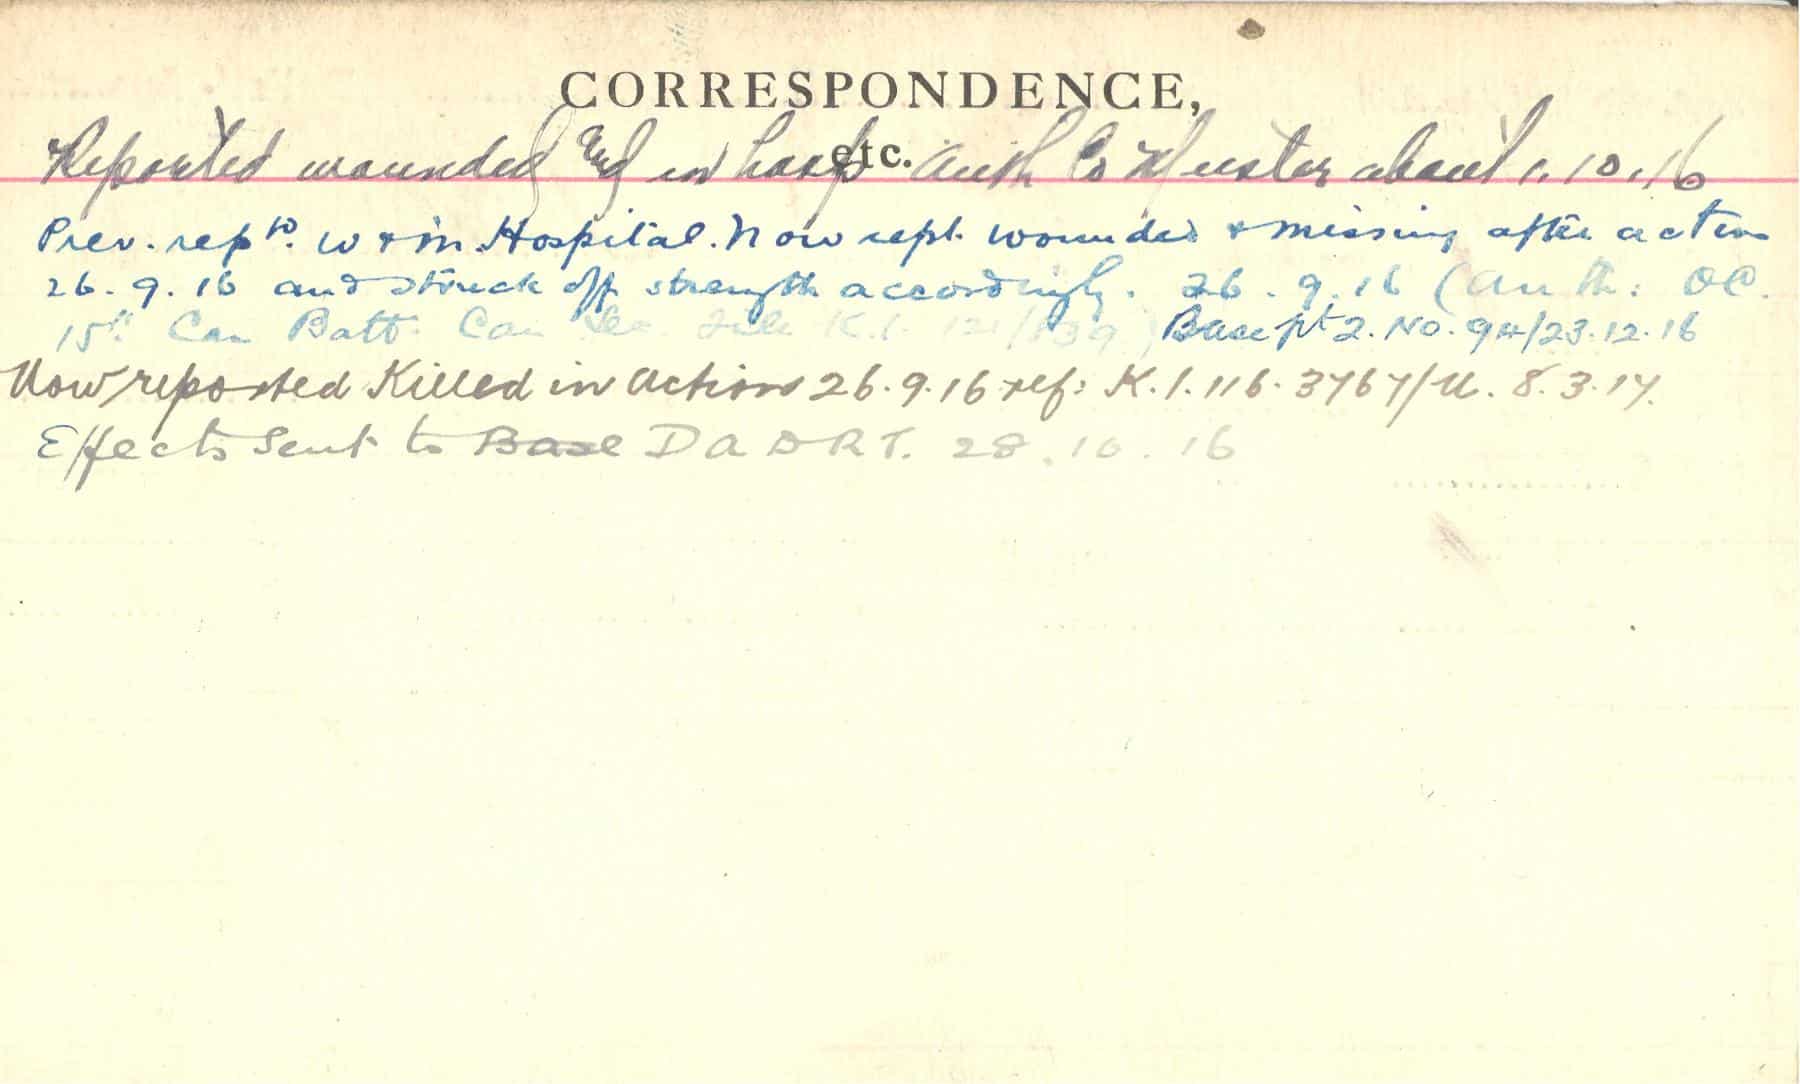 CORRESPONDENCE,
etc.
Reported wounded and in hosp Auth Co Muster about 1.10.16
Prev. reptd. w & in Hospital. Now rept. wounded & missing after action
26.9.16 and struck off strength accordingly. 26.9.16 (Auth: OC.
15th Can Batt. Can File K.1. Base pt 2. No. 94/23.12.16
Now reported Killed in Action 26.9.16 ref: K.1.116.3767/U. 8.3.17.
Effects Sent to Base DADRT. 28.10.16